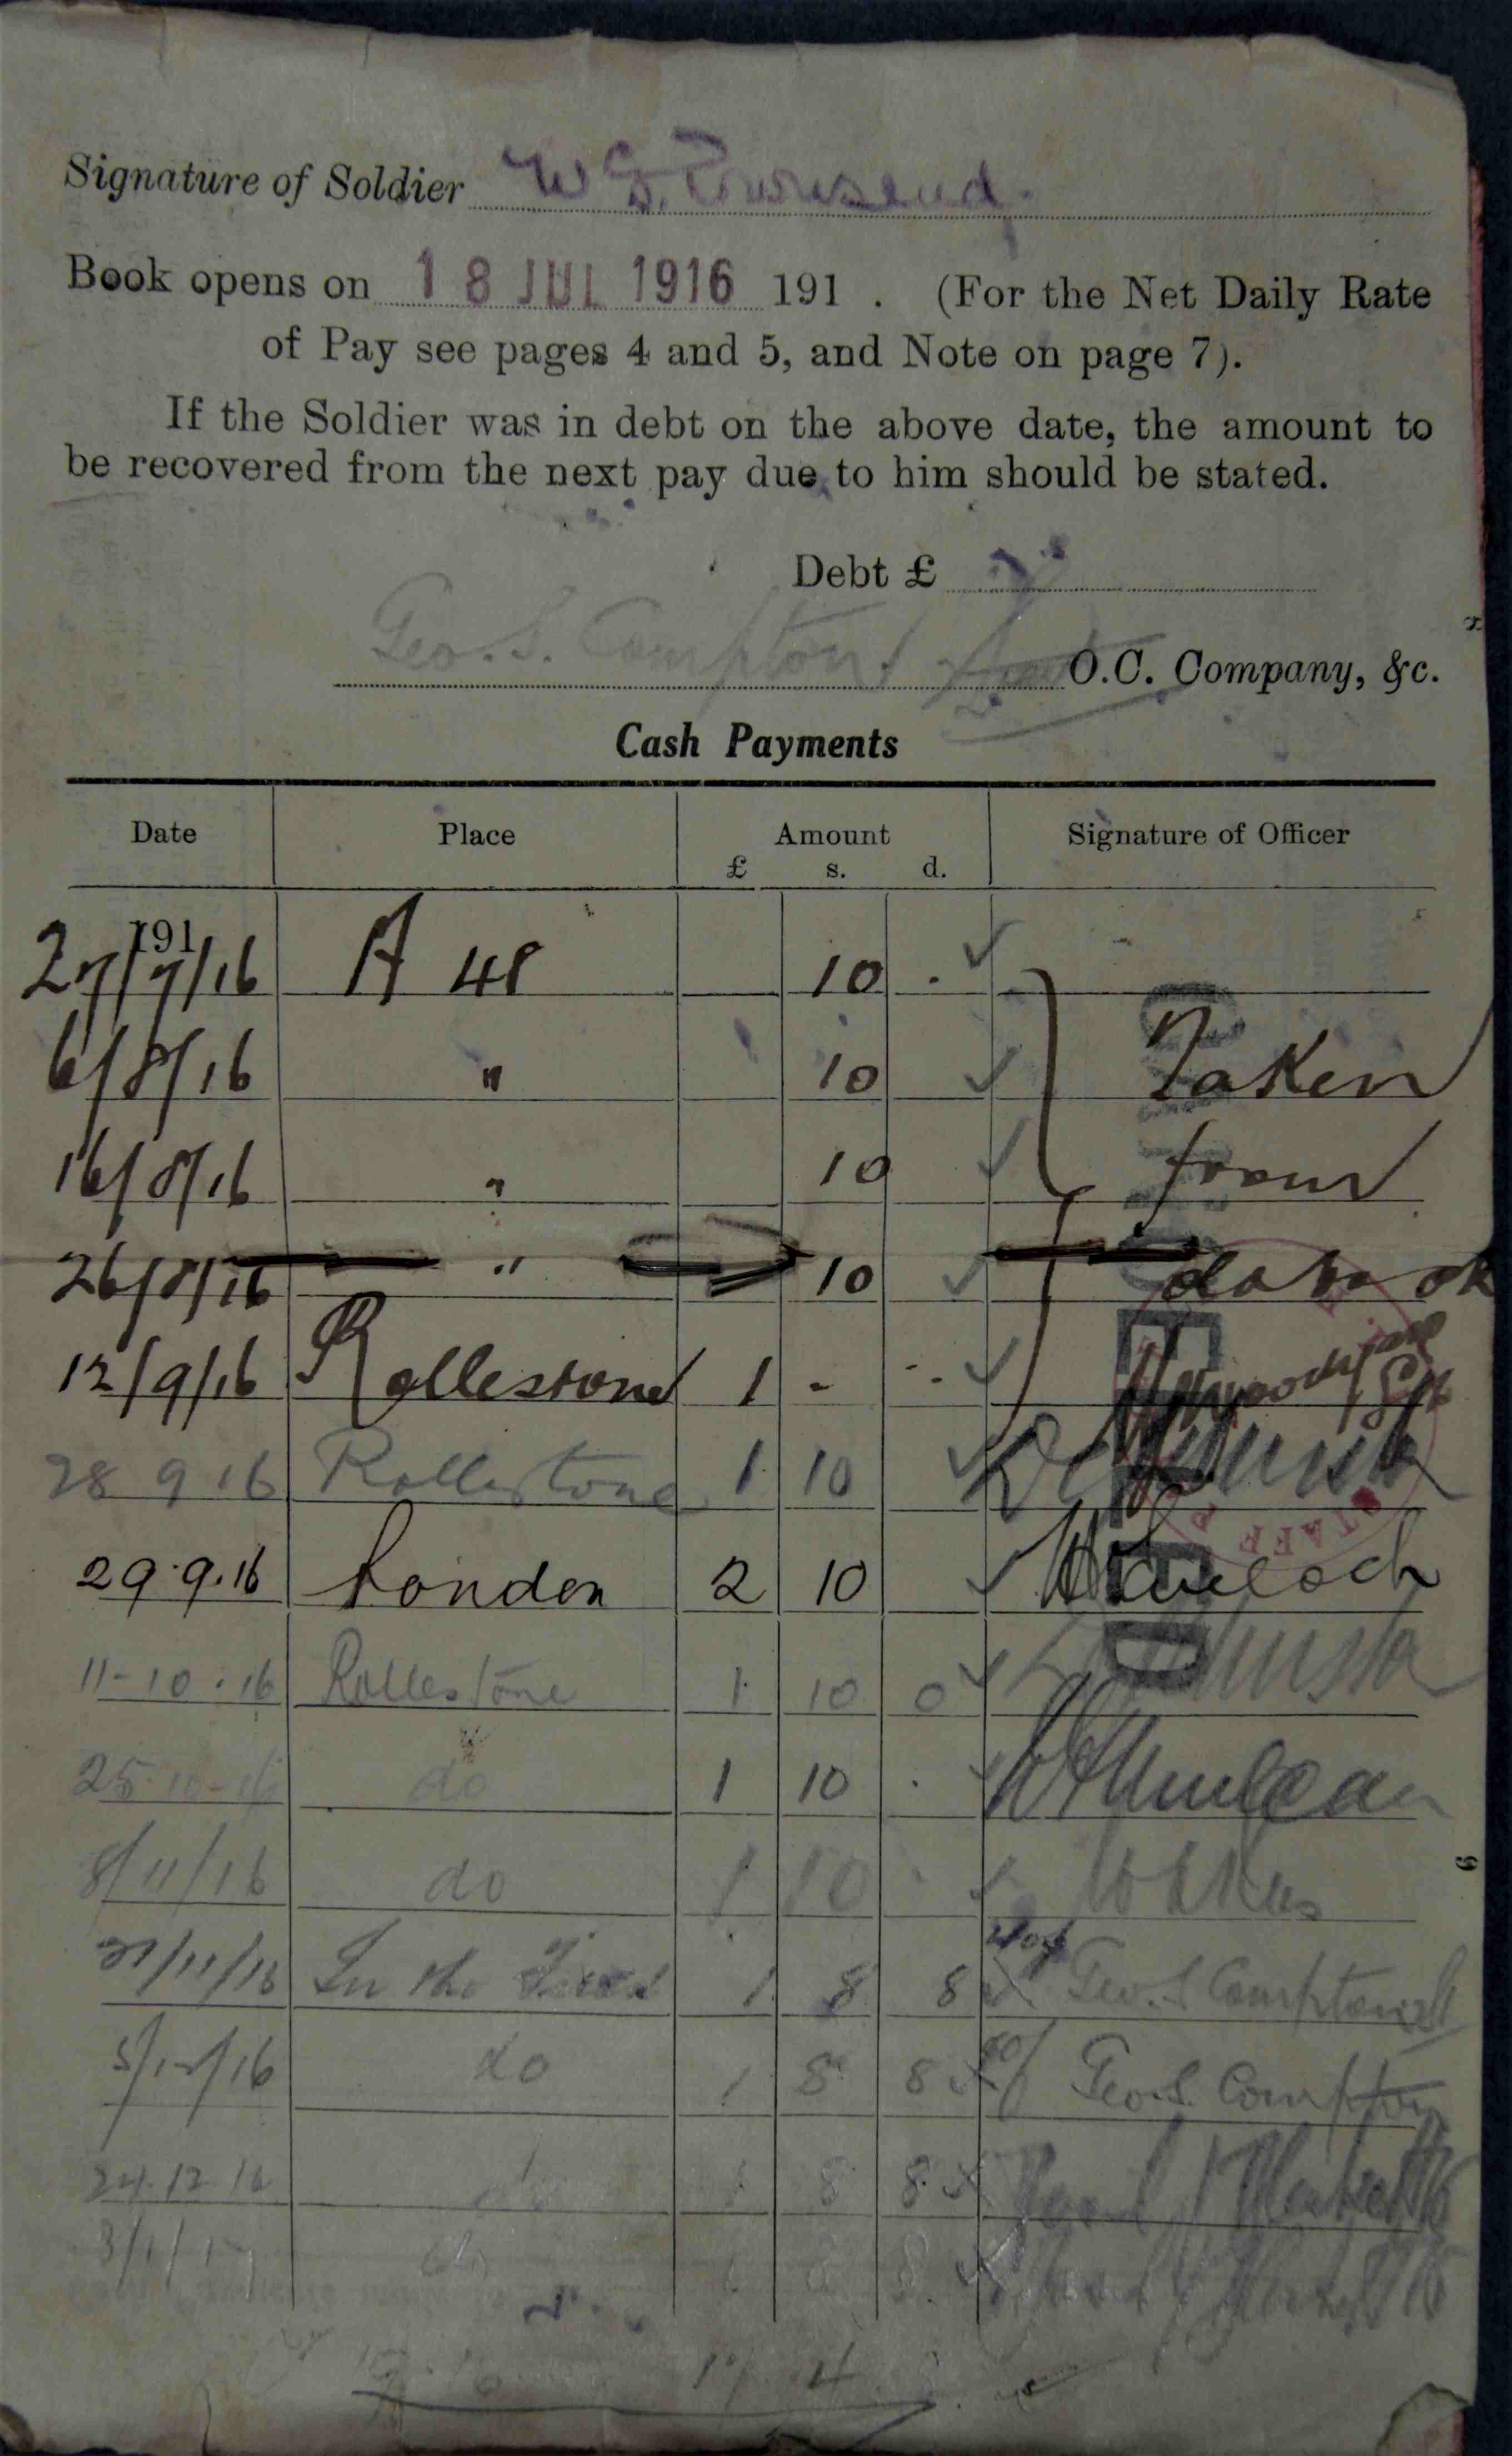 Signature of Soldier W G. Townsend.
Book opens on 18 JUL 1916 191 . (For the Net Daily Rate
of Pay see pages 4 and 5, and Note on page 7).
If the Soldier was in debt on the above date, the amount to
be recovered from the next pay due to him should be stated.
Debt £
Geo. S. Compton O.C. Company, &c.
Cash Payments
Date Place Amount Signature of Officer
£ s. d.
191
27/7/16 A 48 10 .
6/8/16 " 10 Taken
16/8/16 " 10 from
26/8/16 " 10
12/9/16 Rollestone 1 - -
28 9 16 Rollestone 1 10
29.9.16 London 2 10
11-10.16 Rollestone 1 10 0
25-10-16 do 1 10 .
8/11/16 do 1 10 .
21/11/16 In the Field 1 8 8 Geo. S Compton
5/12/16 do 1 8 8 Geo. S. Compton
24.12.16 do 1 8 8
3/1/17 do 1 8 8
17 4